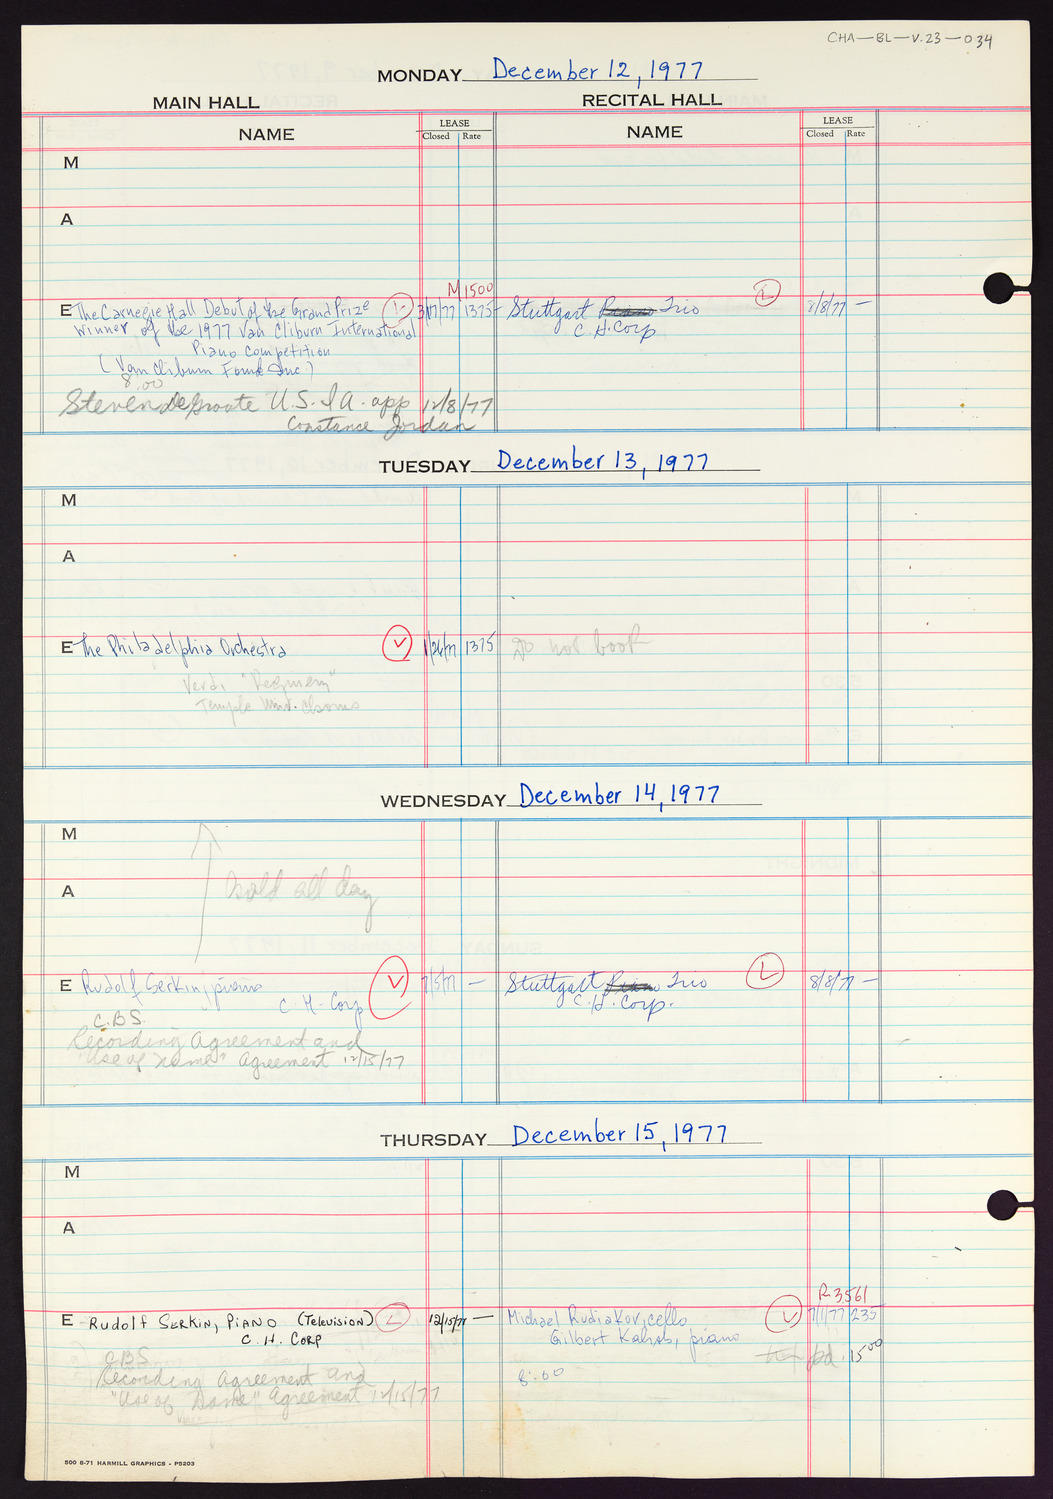 CHA-BL-V.23-034
MONDAY December 12, 1977
MAIN HALL RECITAL HALL
NAME LEASE Closed Rate NAME LEASE Closed Rate
M
A
M 1500
E The Carnegie Hall Debut of the Grand Prize L 3/17/77 1375 Stuttgart Piano Trio L 8/8/77 —
Winner of the 1977 Van Cliburn International C.H. Corp
Piano Competition
(Van Cliburn Found Inc.)
8:00
Steven deGroote U.S.I.A. app 12/8/77
Constance Jordan
TUESDAY December 13, 1977
M
A
E The Philadelphia Orchestra V 1/26/77 1375 Do not book
Verdi "Requiem"
Temple Univ. Chorus
WEDNESDAY December 14, 1977
M
A hold all day
E Rudolf Serkin, piano V 7/5/77 — Stuttgart Piano Trio L 8/8/77 —
C H Corp C.H. Corp.
C.B.S.
Recording Agreement and
"Use of Name" Agreement 12/15/77
THURSDAY December 15, 1977
M
A
R 3561
E Rudolf Serkin, Piano (Television) L 12/15/77 — Michael Rudiakov, cello V 7/1/77 235
C. H. Corp Gilbert Kalish, piano
pd. 15 00
CBS 8:00
Recording Agreement and
"Use of Name" Agreement 12/15/77
500 8-71 HARMILL GRAPHICS - P5203